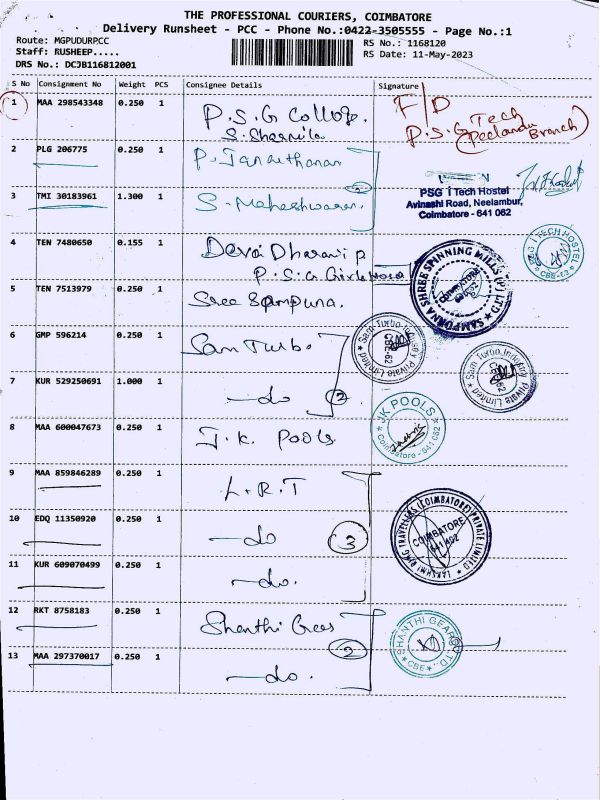 THE PROFESSIONAL COURIERS, COIMBATORE
Delivery Runsheet - PCC - Phone No.:0422-3505555 - Page No.:1
Route: MGPUDURPCC
RS No.: 1168120
Staff: RUSHEEP.....
RS Date: 11-May-2023
DRS No.: DCJB116812001
S No Consignment No Weight PCS Consignee Details Signature
1 MAA 298543348 0.250 1 P.S.G College. F/D
S. Sharmila P.S.G Tech (Peelamdu Branch)
2 PLG 206775 0.250 1 P. Janarthanan
3 TMI 30183961 1.300 1 S. Maheshwaran 2
PSG i Tech Hostel
Avinashi Road, Neelambur,
Coimbatore - 641 062
PSG I TECH HOSTEL CBE-62
4 TEN 7480650 0.155 1 Devai Dharani P
P.S.G Girls Hostel
5 TEN 7513979 0.250 1 Sree Sampurna.
SAMPORNA SHREE SPINNING MILLS (P) LTD
6 GMP 596214 0.250 1 Sam Turbo
Sam Turbo Industry Private Limited CBE-62
7 KUR 529250691 1.000 1 do 2
Sam Turbo Industry Private Limited CBE-62
8 MAA 600047673 0.250 1 J.K. Pools
JK POOLS Coimbatore - 641 062
9 MAA 859846289 0.250 1 L.R.T
10 EDQ 11350920 0.250 1 do 3
LAKSHMI RING TRAVELLERS (COIMBATORE) PRIVATE LIMITED COIMBATORE 641 402
11 KUR 609070499 0.250 1 do.
12 RKT 8758183 0.250 1 Shanthi Gears
2
SHANTHI GEARS LTD. CBE
13 MAA 297370017 0.250 1 do.